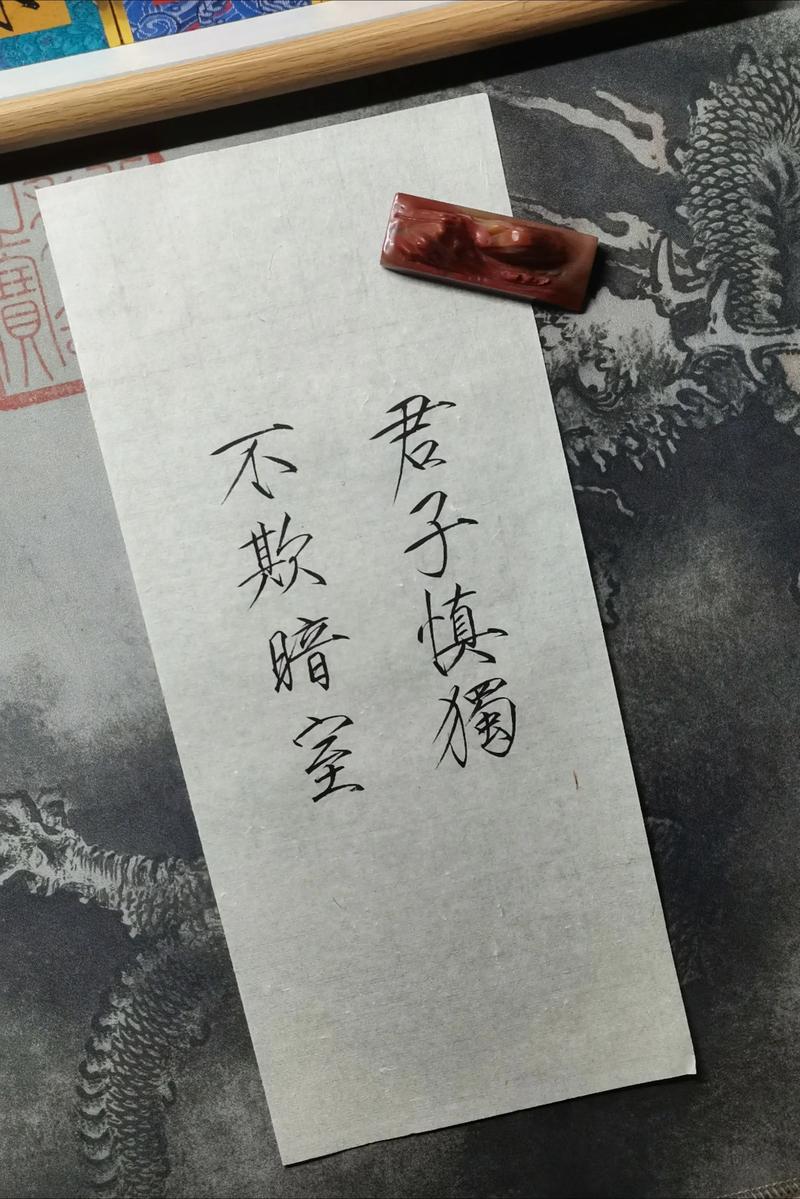 君子慎獨
不欺暗室
寶